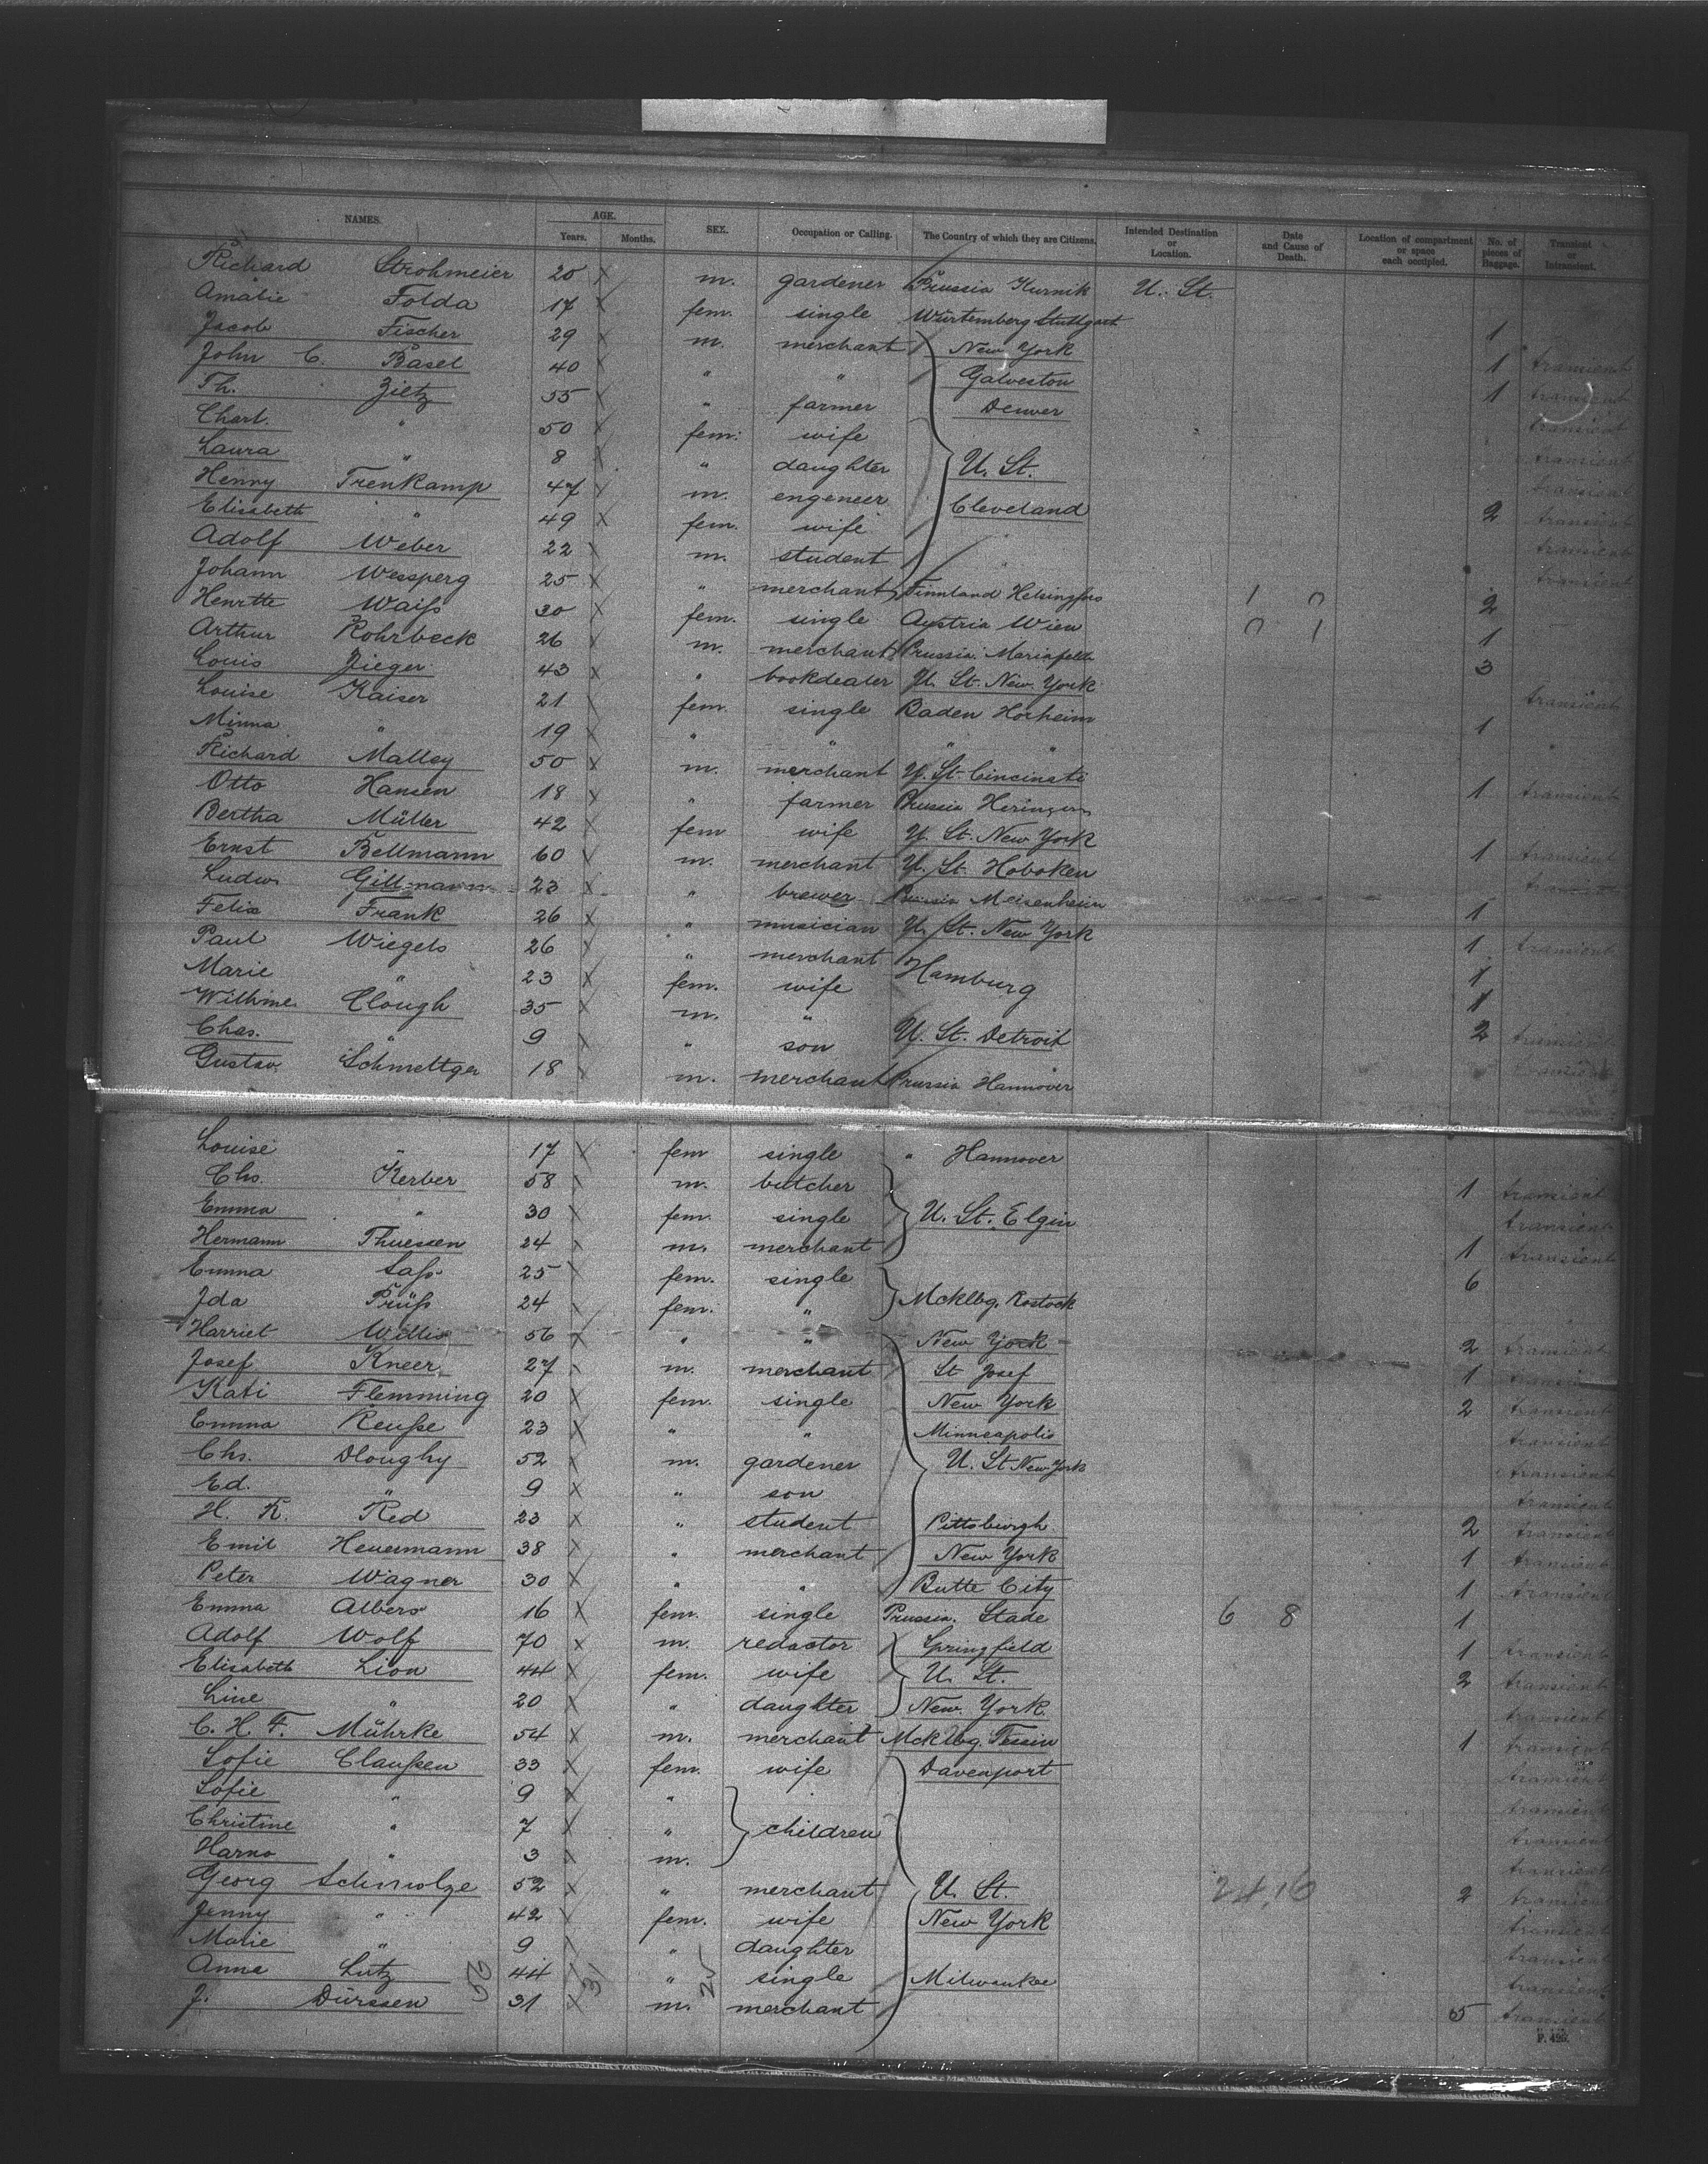 NAMES. AGE. SEX. Occupation or Calling. The Country of which they are Citizens. Intended Destination or Location. Date and Cause of Death. Location of compartment or space each occupied. No. of pieces of Baggage. Transient or Intransient.
Years. Months.
Richard Strohmeier 20 m. gardener Prussia Kurnik U. St.
Amalie Folda 17 fem. single Würtemberg Stuttgart
Jacob Fischer 29 m. merchant New York 1
John C. Basel 40 " " Galveston 1 transient
Th. Zietz 55 " farmer Denver 1 transient
Charl. " 50 fem: wife transient
Laura " 8 " daughter U. St. transient
Henry Trenkamp 47 m. engeneer Cleveland transient
Elisabeth " 49 fem. wife 2 transient
Adolf Weber 22 m. student transient
Johann Wessperg 25 " merchant Finnland Helsingfors transient
Henrtte Waiß 30 fem. single Austria Wien 2
Arthur Rohrbeck 26 m. merchant Prussia Mariafelde 1
Louis Zieger 43 " bookdealer U. St. New York 3
Louise Kaiser 21 fem. single Baden Horheim transient
Minna " 19 " " " " 1
Richard Malley 50 m. merchant U. St. Cincinati
Otto Hansen 18 " farmer Prussia Heringen 1 transient
Bertha Müller 42 fem wife U. St. New York
Ernst Bellmann 60 m. merchant U. St. Hoboken 1 transient
Ludw. Gillmann 23 " brewer Prussia Meisenheim
Felix Frank 26 " musician U. St. New York 1
Paul Wiegels 26 " merchant Hamburg 1 transient
Marie " 23 fem. wife 1
Wilhme. Clough 35 m. " 1
Chas. " 9 " son U. St. Detroit 2 transient
Gustav. Schmettger 18 m. merchant Prussia Hannover transient
Louise " 17 fem single " Hannover
Chs. Kerber 58 m. butcher 1 transient
Emma " 30 fem. single U. St. Elgin transient
Hermann Thuessen 24 m. merchant 1 transient
Emma Saß 25 fem. single 6
Ida Prüß 24 fem. " Mcklbg. Rostock
Harriet Willis 56 " " New York 2 transient
Josef Kneer 27 m. merchant St Josef 1 transient
Kati Flemming 20 fem. single New York 2 transient
Emma Reuße 23 " " Minneapolis transient
Chs. Dloughy 52 m. gardener U. St New York transient
Ed. " 9 " son transient
H. R. Red 23 " student Pittsburgh 2 transient
Emil Heuermann 38 " merchant New York 1 transient
Peter Wagner 30 " " Butte City 1 transient
Emma Albers 16 fem. single Prussia. Stade 6 8 1
Adolf Wolf 70 m. redactor Springfield 1 transient
Elisabeth Lion 44 fem. wife U. St. 2 transient
Line " 20 " daughter New York transient
C. H. F. Mührke 54 m. merchant Mcklbg. Tessin 1 transient
Sofie Claußen 33 fem. wife Davenport transient
Sofie " 9 " transient
Christine " 7 " children transient
Harno " 3 m. transient
Georg Schmolze 52 " merchant U. St. 24,16 2 transient
Jenny " 42 fem. wife New York transient
Marie " 9 " daughter transient
Anna Lutz 44 " single Milwaukee transient
J. Dürssen 31 m. merchant 5 transient
56 31 25
P. 425.